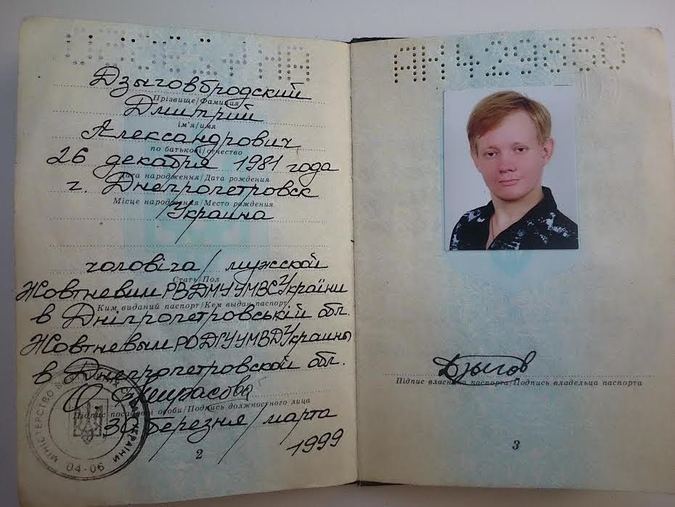 Дзыговбродский
Прізвище/Фамилия
Дмитрий
ім'я/имя
Александрович
по батькові/отчество
26 декабря 1981 года
Дата народження/Дата рождения
г. Днепропетровск
Місце народження/Место рождения
Украина
чоловіча/мужской
Стать/Пол
Жовтневим РВДМУ УМВС України
Ким виданий паспорт/Кем выдан паспорт
в Дніпропетровській обл.
Жовтневым РОДГУ УМВД Украины
в Днепропетровской обл.
Підпис посадової особи/Подпись должностного лица
30 березня/марта
1999
МІНІСТЕРСТВО УКРАЇНИ
04-06
2
АН429650
Дзыгов
Підпис власника паспорта/Подпись владельца паспорта
3